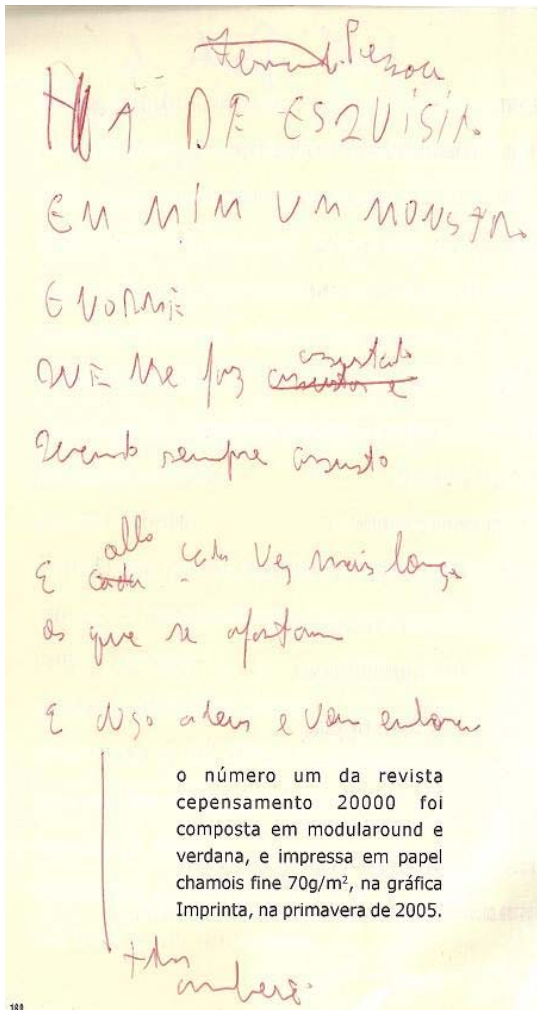 Fernando Pessoa
HÁ DE ESQUISITO
EM MIM UM MONSTRO
ENORME
QUE me faz assustado
Quando sempre assusto
E olho cada vez mais longe
os que se afastam
E digo adeus e vou embora
o número um da revista
cepensamento 20000 foi
composta em modularound e
verdana, e impressa em papel
chamois fine 70g/m², na gráfica
Imprinta, na primavera de 2005.
160